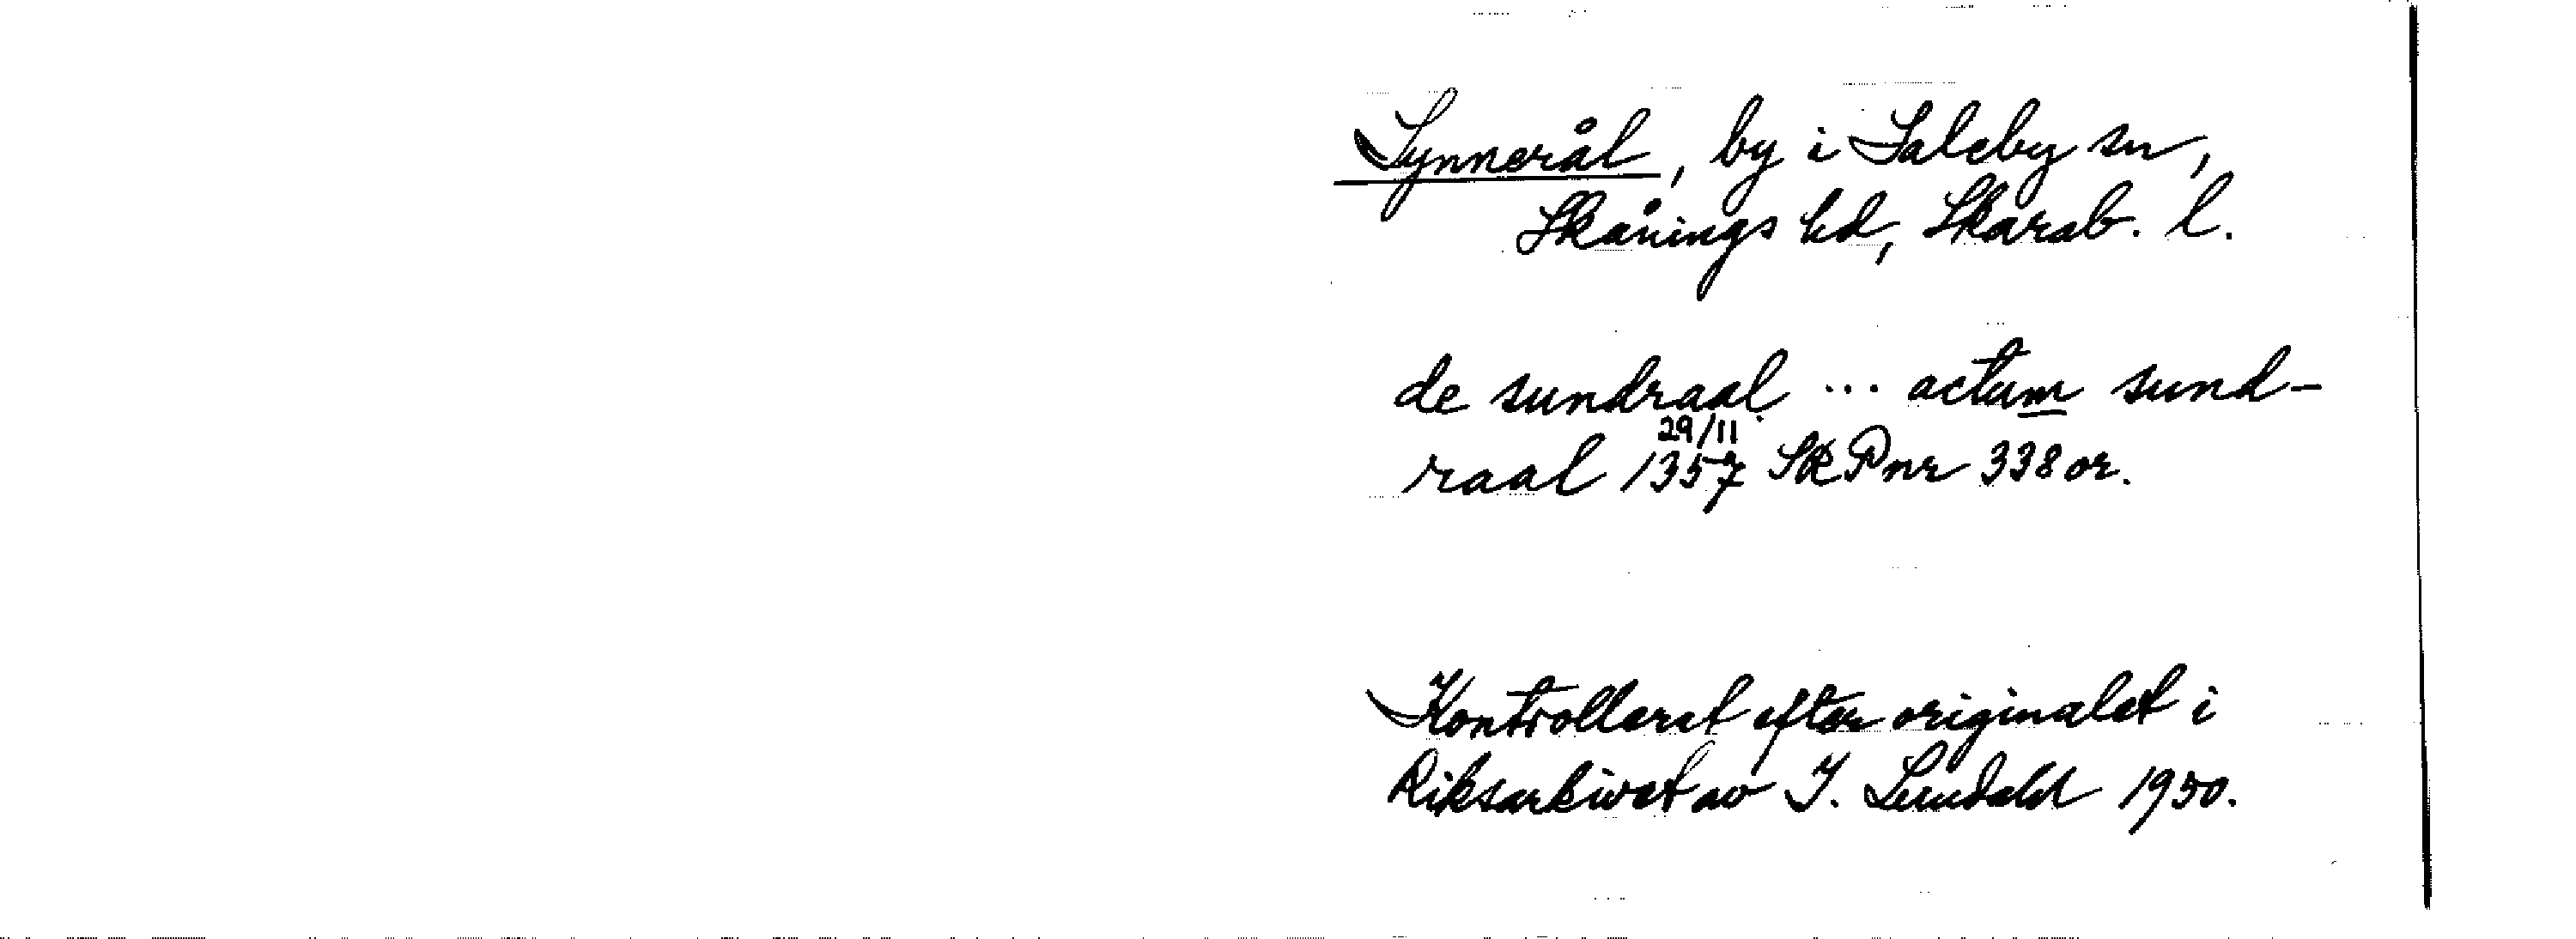 Synnerål, by i Saleby sn,
Skånings hd, Skarab. l.
de sundraal ... actum sund-
raal 29/11 1357 SRP nr 338 or.
Kontrollerat efter originalet i
Riksarkivet av I. Lundahl 1950.